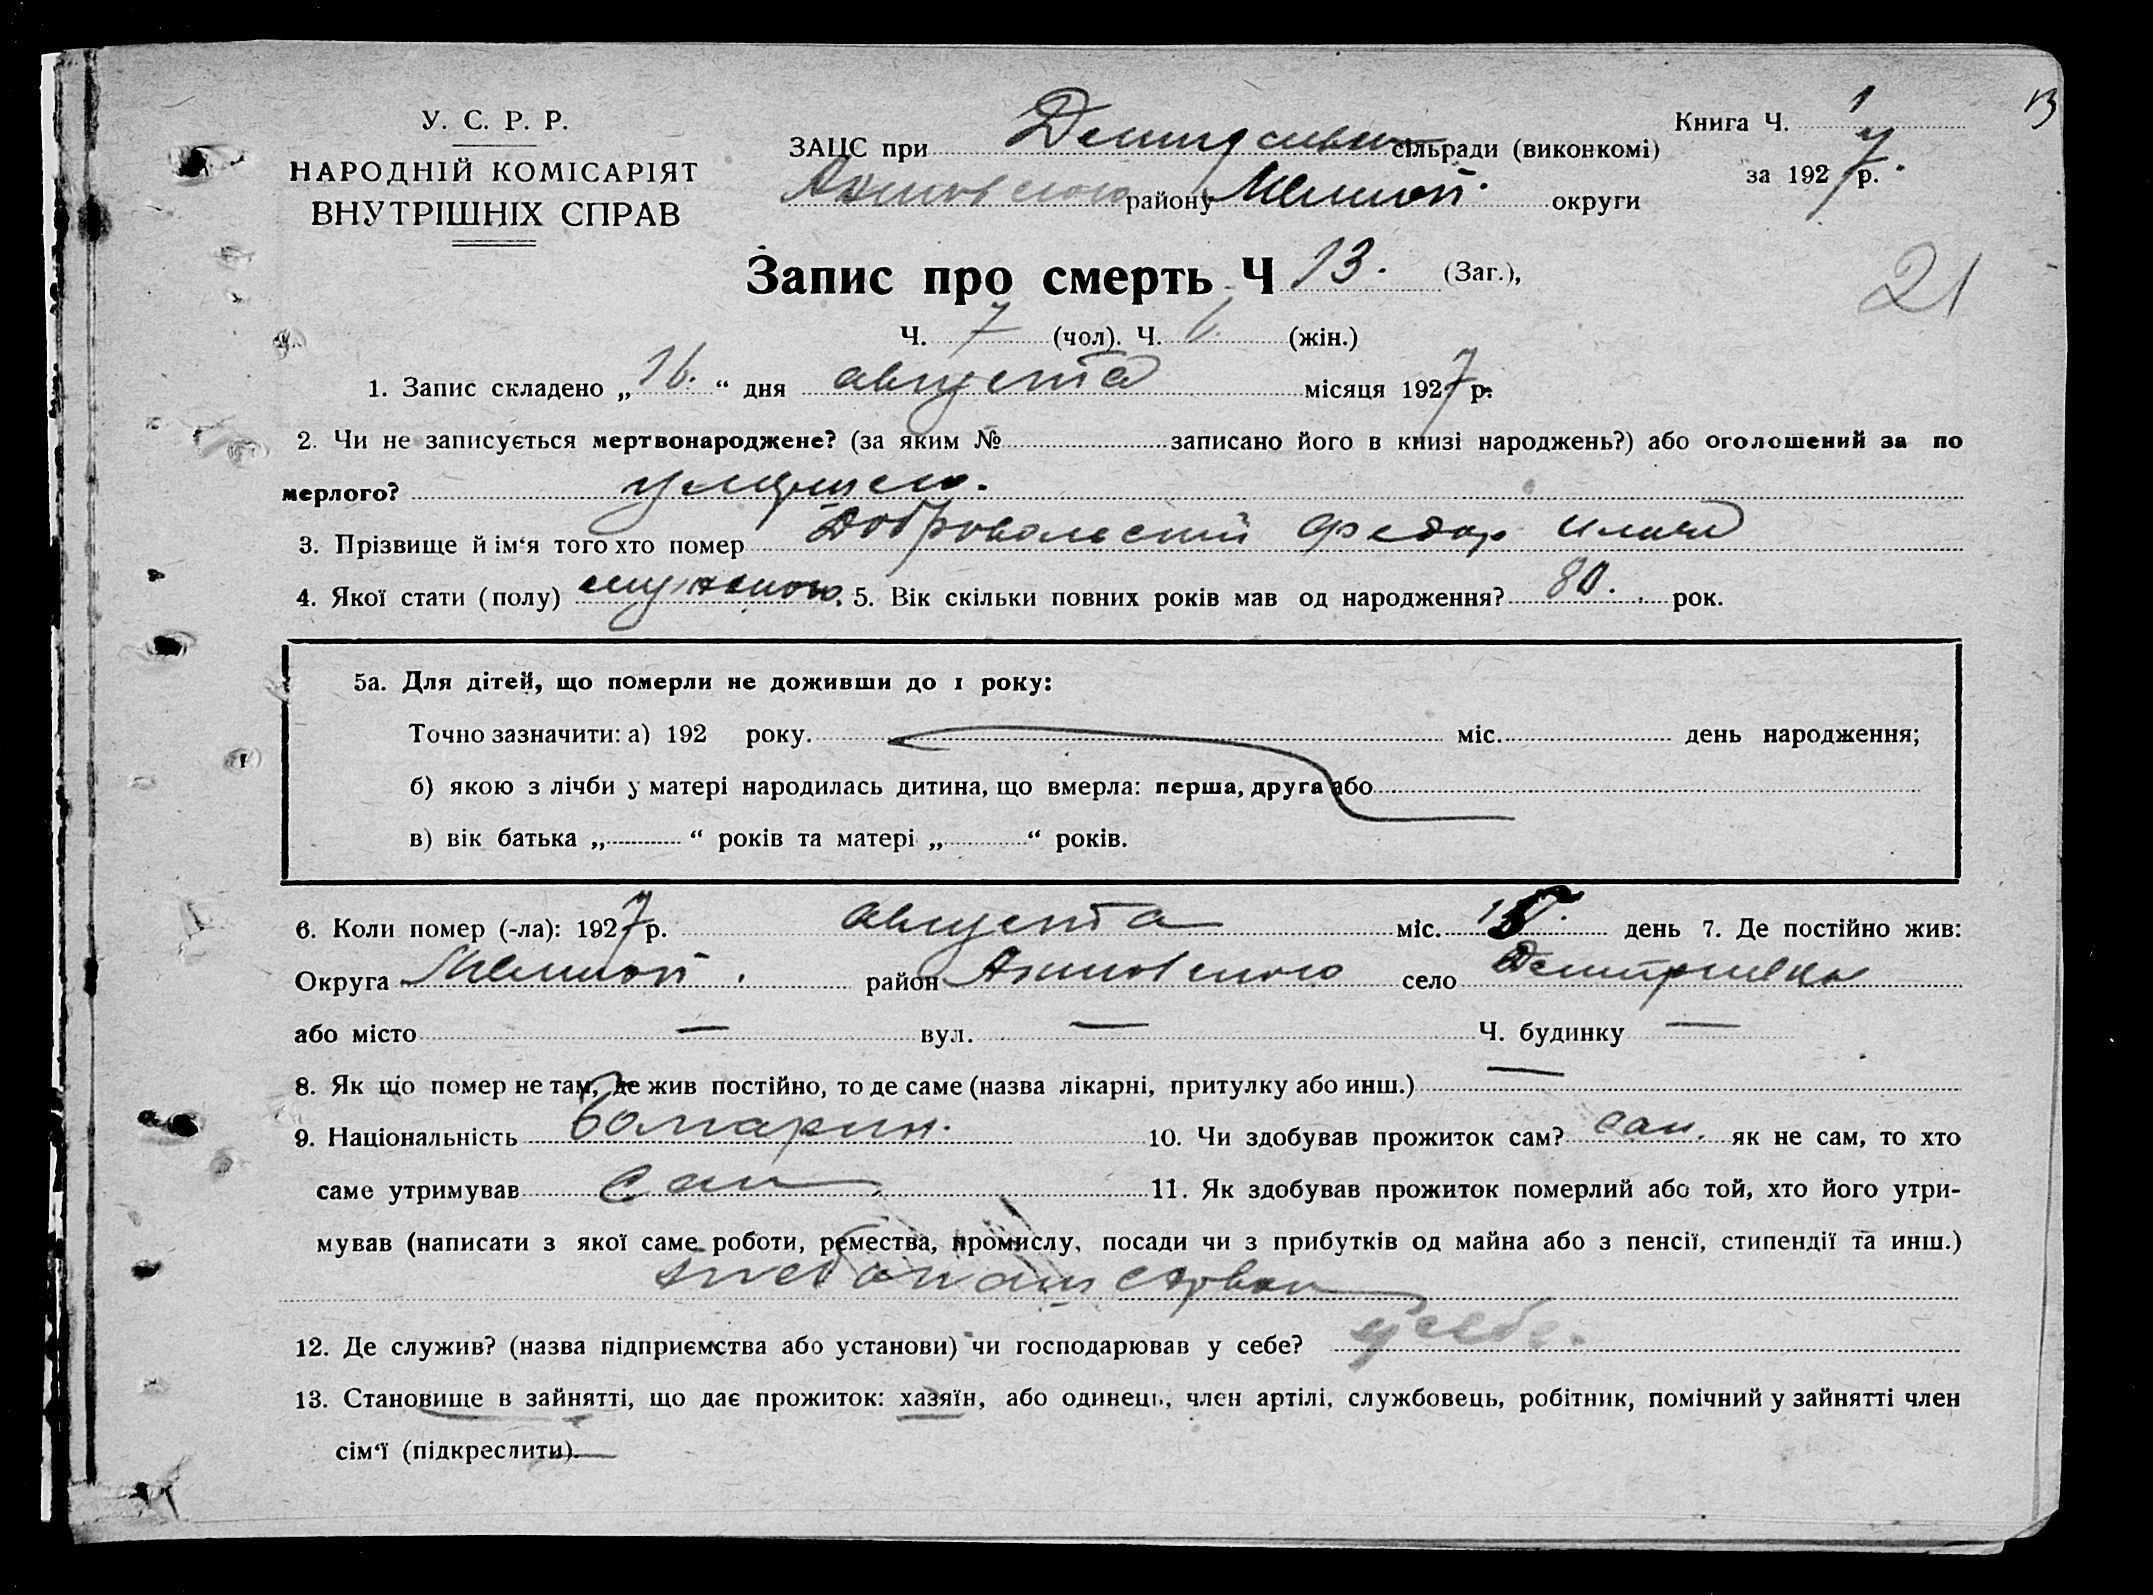 У. С. Р. Р.
НАРОДНІЙ КОМІСАРІЯТ
ВНУТРІШНІХ СПРАВ
Книга Ч. 1
13
за 1927 р.
ЗАЦС при сільради (виконкомі)
району Мелитоп. округи
Запис про смерть Ч 13. (Заг.),
21
Ч. 7 (чол). Ч. 6. (жін.)
1. Запис складено „16.“ дня августа місяця 1927 р.
2. Чи не записується мертвонароджене? (за яким № записано його в книзі народжень?) або оголошений за по
мерлого? умершего.
3. Прізвище й ім‘я того хто помер Добровольский Федор
4. Якої стати (полу) мужеского. 5. Вік скільки повних років мав од народження? 80. рок.
5а. Для дітей, що померли не доживши до 1 року:
Точно зазначити: а) 192 року. міс. день народження;
б) якою з лічби у матері народилась дитина, що вмерла: перша, друга або
в) вік батька „ “ років та матері „ “ років.
6. Коли помер (-ла): 1927 р. августа міс. 15. день 7. Де постійно жив:
Округа Мелитоп. район Акимовского село
або місто — вул. — Ч. будинку —
8. Як що помер не там, де жив постійно, то де саме (назва лікарні, притулку або инш.) —
9. Національність болгарин. 10. Чи здобував прожиток сам? сам. як не сам, то хто
саме утримував сам 11. Як здобував прожиток померлий або той, хто його утри-
мував (написати з якої саме роботи, ремества, промислу, посади чи з прибутків од майна або з пенсії, стипендії та инш.)
хлебопашествовал
12. Де служив? (назва підприємства або установи) чи господарював у себе? у себе.
13. Становище в зайнятті, що дає прожиток: хазяїн, або одинець, член артілі, службовець, робітник, помічний у зайнятті член
сім‘ї (підкреслити).